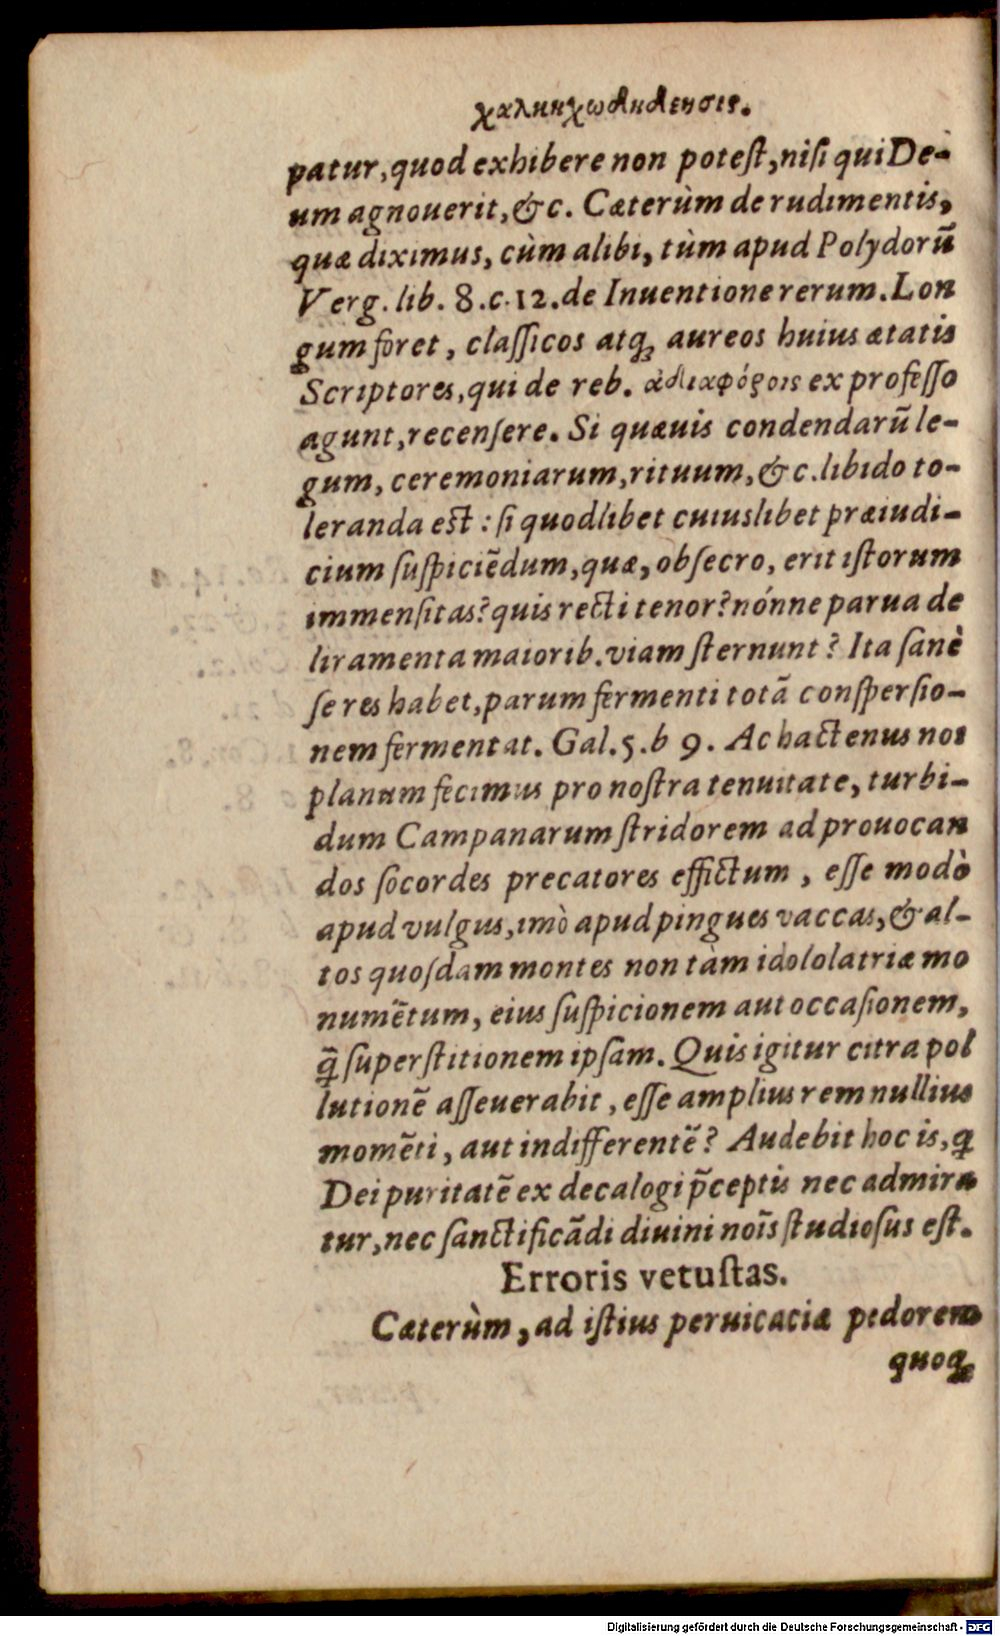 χαλκηχωδκδενσις.
patur, quod exhibere non potest, nisi qui De-
um agnouerit, & c. Cæterùm de rudimentis,
quæ diximus, cùm alibi, tùm apud Polydorū
Verg. lib. 8. c. 12. de Inuentione rerum. Lon
gum foret, classicos atq; aureos huius ætatis
Scriptores, qui de reb. ἀδιαφόροις ex professo
agunt, recensere. Si quæuis condendarū le-
gum, ceremoniarum, rituum, & c. libido to-
leranda est: si quodlibet cuiuslibet præiudi-
cium suspiciēdum, quæ, obsecro, erit istorum
immensitas? quis recti tenor? nónne parua de
liramenta maiorib. viam sternunt? Ita sanè
se res habet, parum fermenti totā conspersio-
nem fermentat. Gal. 5. b 9. Ac hactenus nos
planum fecimus pro nostra tenuitate, turbi-
dum Campanarum stridorem ad prouocan
dos socordes precatores effictum, esse modò
apud vulgus, imò apud pingues vaccas, & al-
tos quosdam montes non tàm idololatriæ mo
numētum, eius suspicionem aut occasionem,
q̄ superstitionem ipsam. Quis igitur citra pol
lutionē asseuerabit, esse amplius rem nullius
momēti, aut indifferentē? Audebit hoc is, q
Dei puritatē ex decalogi p̄ceptis nec admira
tur, nec sanctificādi diuini nōis studiosus est.
Erroris vetustas.
Cæterùm, ad istius peruicaciæ pedorem
quoq;
Digitalisierung gefördert durch die Deutsche Forschungsgemeinschaft - DFG